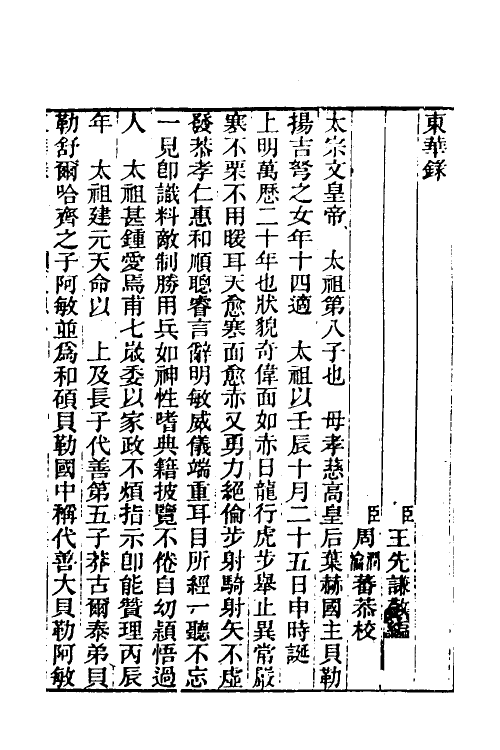 東華錄
臣王先謙敬編
臣周潤瀹蕃恭校
太宗文皇帝　太祖第八子也　母孝慈高皇后葉赫國主貝勒
揚吉弩之女年十四適　太祖以壬辰十月二十五日申時誕
上明萬歷二十年也狀貌奇偉面如赤日龍行虎步舉止異常嚴
寒不栗不用暖耳天愈寒面愈赤又勇力絕倫步射騎射矢不虛
發恭孝仁惠和順聰睿言辭明敏威儀端重耳目所經一聽不忘
一見卽識料敵制勝用兵如神性嗜典籍披覽不倦自幼穎悟過
人　太祖甚鍾愛焉甫七歲委以家政不煩指示卽能贊理丙辰
年　太祖建元天命以　上及長子代善第五子莽古爾泰弟貝
勒舒爾哈齊之子阿敏並爲和碩貝勒國中稱代善大貝勒阿敏